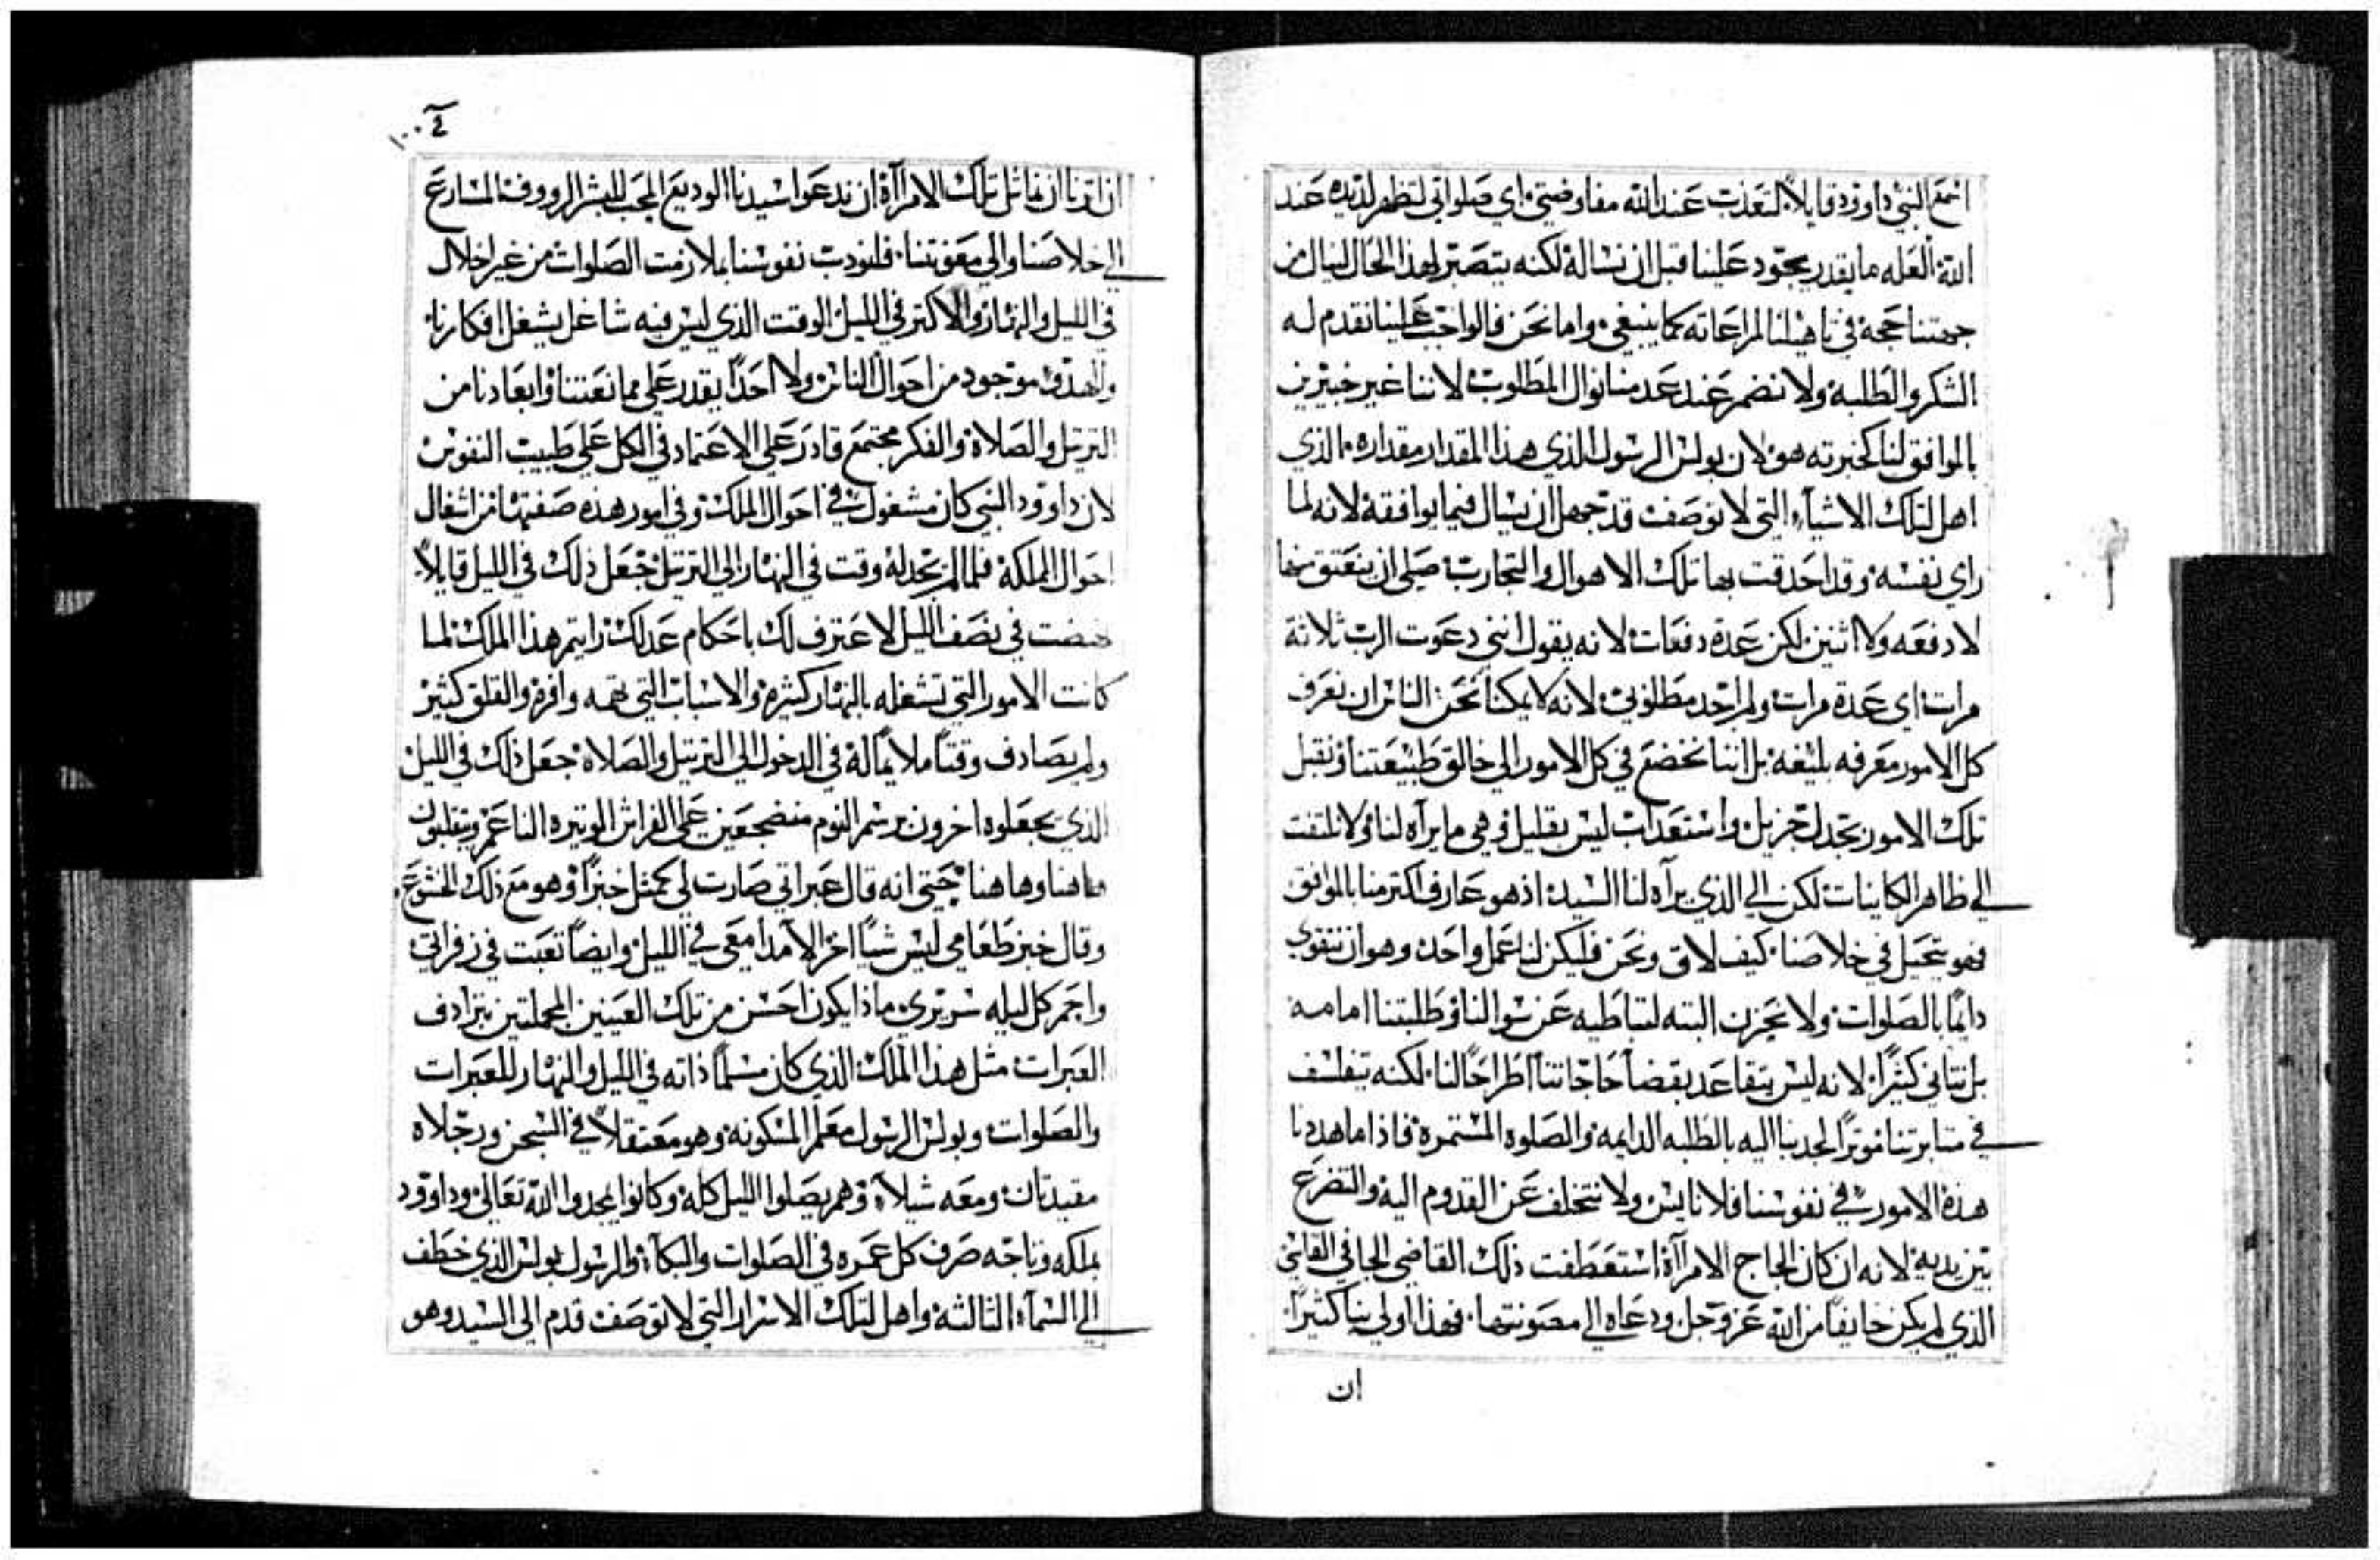 اسمع النبي داوود قايلاً لتعذب عند الله مفاوضتي اي صلواتي لتظهر لذيذه عند
الله العله ما يقدر يجود علينا قبل ان نساله لكنه يتصبر لهذا الحال لينال من
جهتنا حجة في تاهيلنا لمراعاته كما ينبغي واما نحن فالواجب علينا نقدم له
الشكر والطلبه ولا نضجر عند عدمنا نوال المطلوب لاننا غير خبيرين
بالموافق لنا كخبرته هو لان بولس الرسول الذي هذا المقدار مقداره الذي
اهل لتلك الاشياء التي لا توصف قد جهل ان يسال فيما يوافقه لانه لما
راي نفسه وقد احدقت بها تلك الاهوال والتجارب صلى ان ينعتق منها
لا دفعه ولا اثنين لكن عدة دفعات لانه يقول انني دعوت الرب ثلاثة
مرات اي عدة مرات ولم اجد مطلوبي لانه لا يمكنا نحن الناس ان نعرف
كل الامور معرفه بليغه بل اننا نخضع في كل الامور الي خالق طبيعتنا ونقبل
تلك الامور بجدل جزيل واستعداب ليس بقليل وهي ما يراه لنا ولا نلتفت
الي ظاهر الكاينات لكن الي الذي يراه لنا السيد اذ هو عارف اكتر منا بالموافق
فهو يتحيل في خلاصنا كيف لاق ونحن فليكن لنا عمل واحد وهو ان نتقوى
دايمًا بالصلوات ولا نحزن البته لتباطيه عن سوالنا وطلبتنا امامه
بل نتاني كثيرًا لانه ليس يتقاعد بقضا حاجاتنا اطراحًا لنا لكنه يتفلسف
في مثابرتنا موترًا لجدبنا اليه بالطلبه الدايمه والصلوه المستمره فاذا ما هددنا
هذة الامور في نفوسنا فلا نايس ولا نتخلف عن القدوم اليه والتضرع
بين يديه لانه ان كان لجاج الامراة استعطفت ذلك القاضي الجافي القاسي
الذي لم يكن خايفًا من الله عز وجل ودعاه الي معونتها فهذا اولي بنا كثيرًا
ان
١٠٠٤
ان اثرنا ان نماثل تلك الامراة ان ندعوا سيدنا الوديع المحب للبشر الرووف المسارع
الي خلاصنا والي معونتنا فلنودب نفوسنا بملازمت الصلوات من غير اخلال
في الليل والنهار والاكتر في الليل الوقت الذي ليس فيه شاغل يشغل افكارنا
والهدو موجود من احوال الناس ولا احدًا يقدر على ممانعتنا وابعادنا من
الترتيل والصلاة والفكر مجتمع قادر على الاعتماد في الكل على طبيب النفوس
لان داوود النبي كان مشغول في احوال الملك وفي امور هذه صفتها من اشغال
احوال المملكة فلما لم يجد له وقت في النهار الي الترتيل جعل ذلك في الليل قايلاً
نهضت في نصف الليل لاعترف لك باحكام عدلك رايتم هذا الملك لما
كانت الامور التي تشغله بالنهار كثيرة والاسباب التي تهمه وافرة والقلق كثير
ولم يصادف وقتًا ملايمًا له في الدخول الي الترتيل والصلاة جعل ذلك في الليل
الذي يجعلوه اخرون برسم النوم منضجعين على الفراش الوتيره الناعم ويتقلبون
هاهنا وهاهنا حتى انه قال عبراتي صارت لي كمثل خبزًا وهو مع ذلك الخشوع
وقال خبز طعامي ليس شيًا اخر الا مدامعي في الليل وايضًا تعبت في زفراتي
واحم كل ليله سريري ماذا يكون احسن من تلك العينين المجملتين بترادف
العبرات مثل هذا الملك الذي كان مسلمًا ذاته في الليل والنهار للعبرات
والصلوات وبولس الرسول معلم المسكونة وهو معتقلاً في السجن ورجلاه
مقيدتان ومعه شيلا وهم يصلوا الليل كله وكانوا يمجدوا الله تعالى وداوود
بملكه وتاجه صرف كل عمره في الصلوات والبكاء والرسول بولس الذي خطف
الي السماء الثالثه واهل لتلك الاسرار التي لا توصف قدم الى السيد وهو